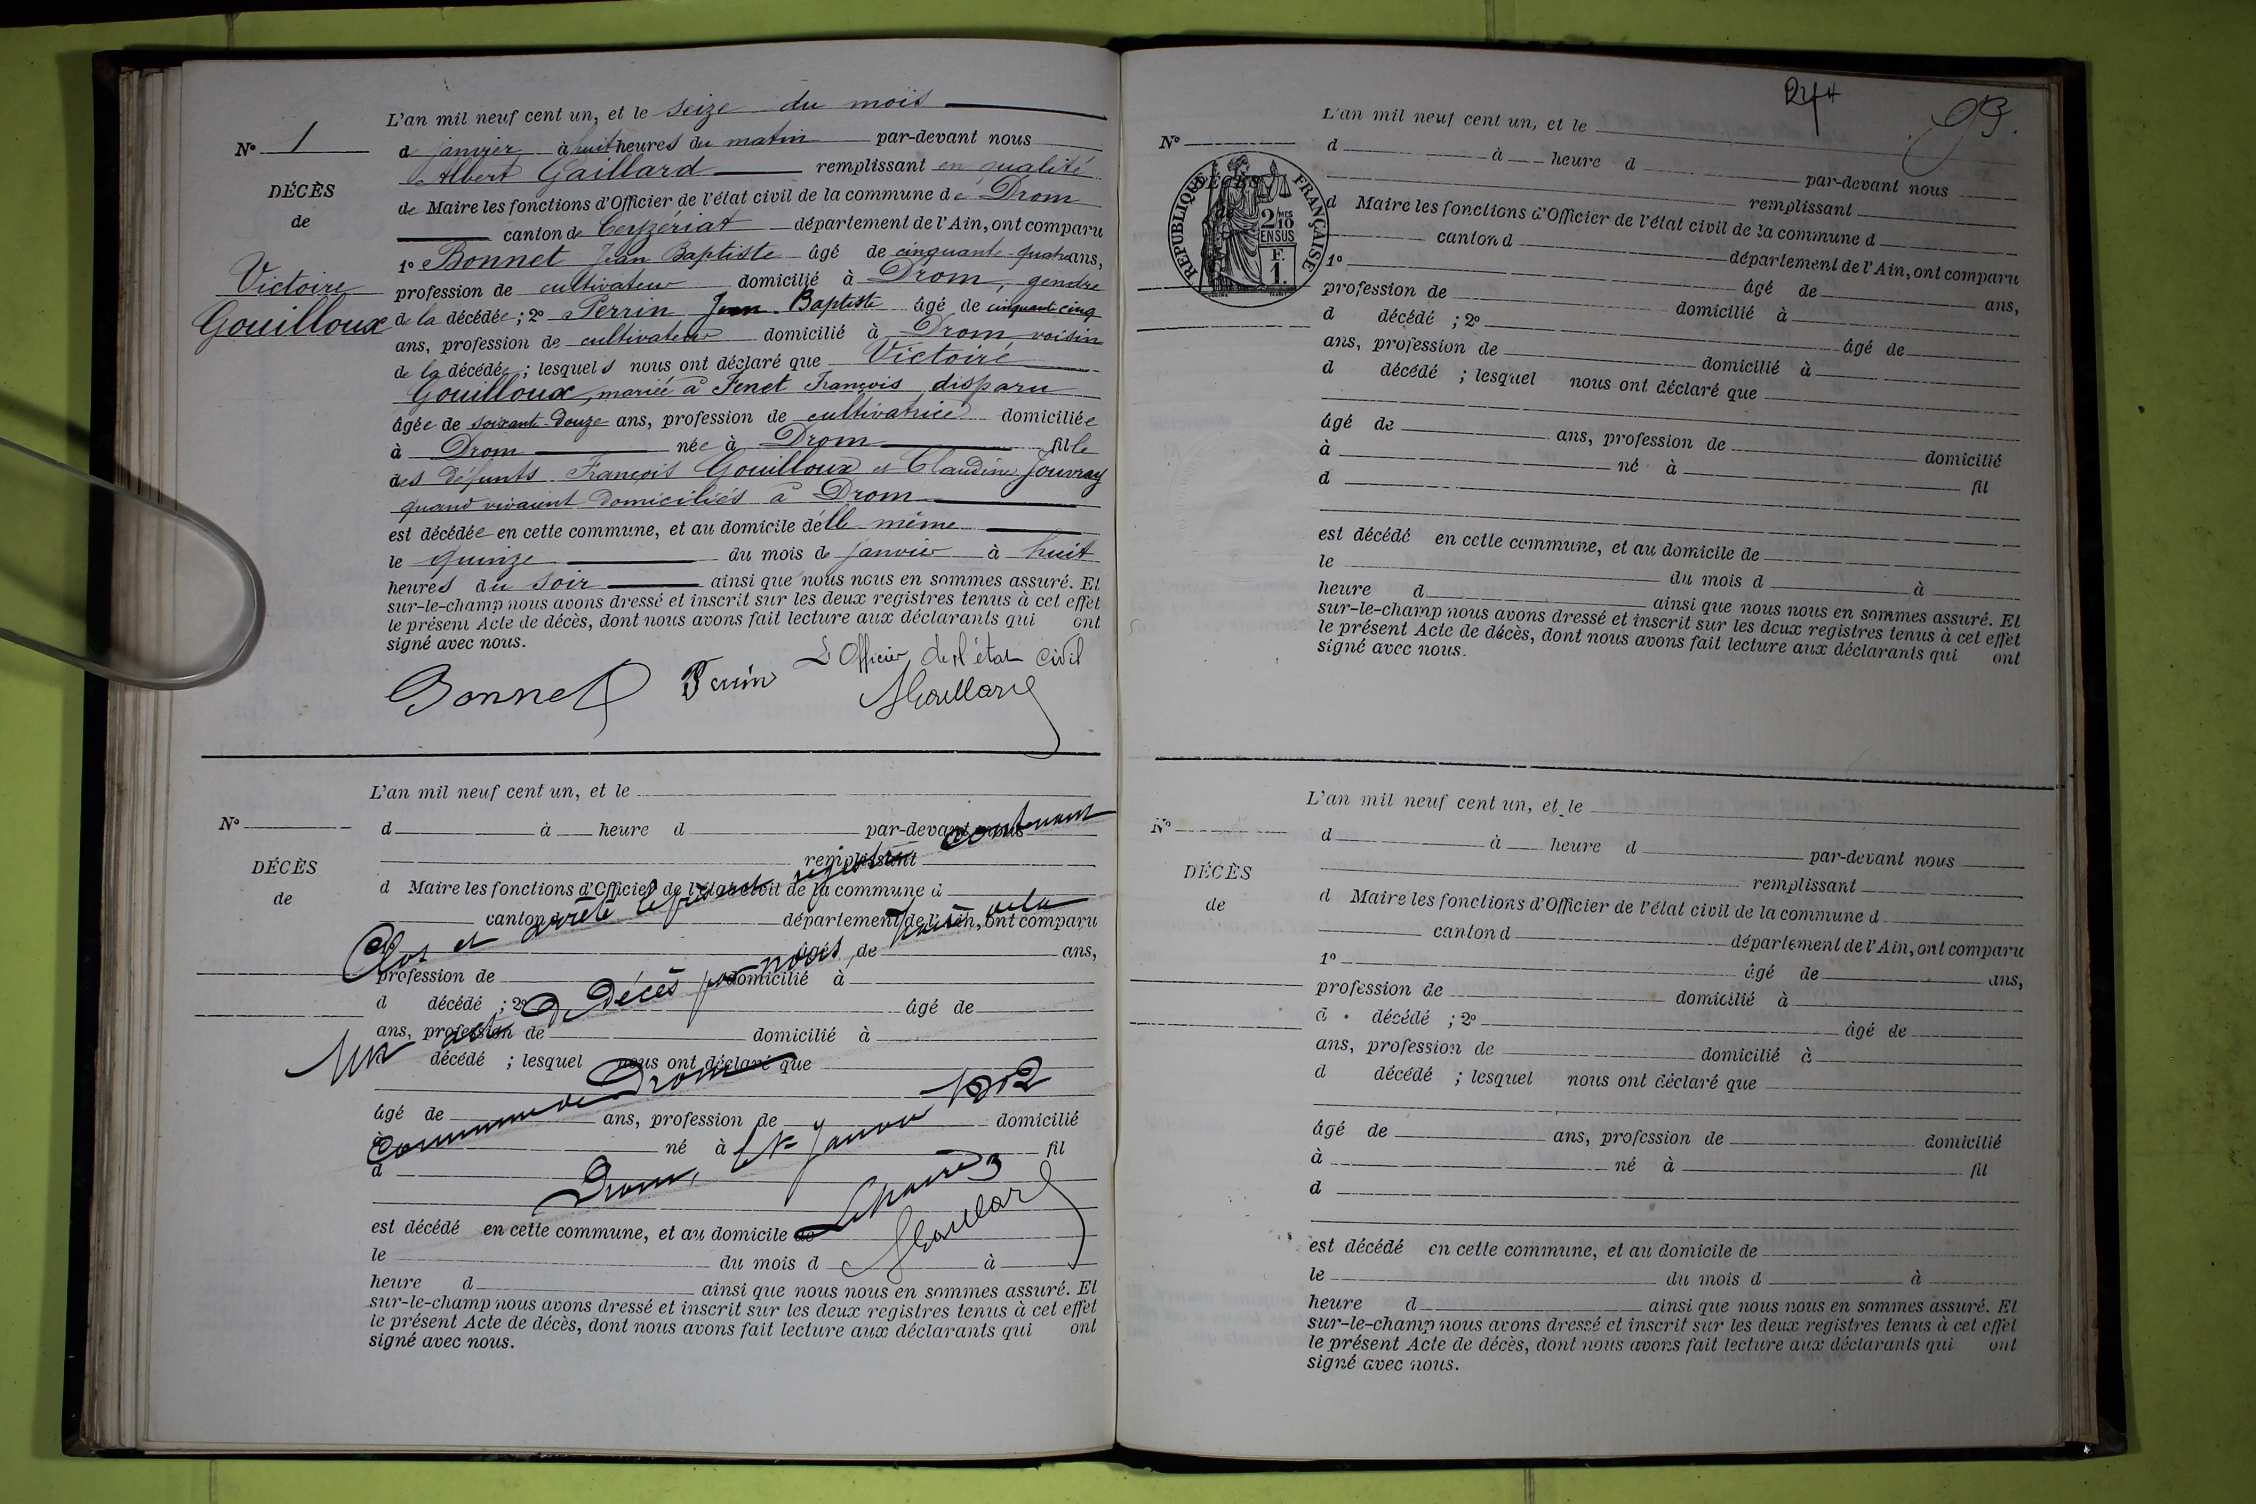 L'an mil neuf cent un, et le seize du mois
N° 1
de janvier à huit heures du matin par-devant nous
Albert Gaillard remplissant en qualité
DÉCÈS
de Maire les fonctions d'Officier de l'état civil de la commune de Drom
de
canton de Ceyzériat département de l'Ain, ont comparu
1° Bonnet Jean Baptiste âgé de cinquante-quatre ans,
Victoire
profession de cultivateur domicilié à Drom, gendre
Gouilloux
de la décédée ; 2° Perrin Jean Baptiste âgé de cinquante cinq
ans, profession de cultivateur domicilié à Drom, voisin
de la décédée ; lesquels nous ont déclaré que Victoire
Gouilloux, mariée à Fenet François disparu
âgée de soixant-douze ans, profession de cultivatrice domiciliée
à Drom née à Drom fille
des défunts François Gouilloux et Claudine Jouvray
quand vivaient domiciliés à Drom
est décédée en cette commune, et au domicile d'elle même
le quinze du mois de janvier à huit
heures du soir ainsi que nous nous en sommes assuré. Et
sur-le-champ nous avons dressé et inscrit sur les deux registres tenus à cet effet
le présent Acte de décès, dont nous avons fait lecture aux déclarants qui ont
signé avec nous.
L'Officier de l'état civil
Bonnet Perrin AGaillard
L'an mil neuf cent un, et le
N°
d à heure d par-devant nous
remplissant
DÉCÈS
d Maire les fonctions d'Officier de l'état civil de la commune d
de
canton d département de l'Ain, ont comparu
âgé de ans,
profession de domicilié à
d décédé ; 2° âgé de
ans, profession de domicilié à
décédé ; lesquel nous ont déclaré que
âgé de ans, profession de domicilié
né à fil
d
est décédé en cette commune, et au domicile de
le du mois d à
heure d ainsi que nous nous en sommes assuré. Et
sur-le-champ nous avons dressé et inscrit sur les deux registres tenus à cet effet
le présent Acte de décès, dont nous avons fait lecture aux déclarants qui ont
signé avec nous.
Clos et arrêté le présent registre contenant
un acte de Décès par nous, Maire de la
commune de Drom
Drom, le 1er Janvier 1902
Le Maire
AGaillard
244
93.
L'an mil neuf cent un, et le
N°
d à heure d par-devant nous
remplissant
DÉCÈS
de
RÉPUBLIQUE FRANÇAISE
2/10mes
EN SUS
F.
1.
d Maire les fonctions d'Officier de l'état civil de la commune d
canton d département de l'Ain, ont comparu
1° âgé de ans,
profession de domicilié à
d décédé ; 2° âgé de
ans, profession de domicilié à
d décédé ; lesquel nous ont déclaré que
âgé de ans, profession de domicilié
à né à fil
d
est décédé en cette commune, et au domicile de
le du mois d à
heure d ainsi que nous nous en sommes assuré. Et
sur-le-champ nous avons dressé et inscrit sur les deux registres tenus à cet effet
le présent Acte de décès, dont nous avons fait lecture aux déclarants qui ont
signé avec nous.
L'an mil neuf cent un, et le
N°
d à heure d par-devant nous
remplissant
DÉCÈS
d Maire les fonctions d'Officier de l'état civil de la commune d
de
canton d département de l'Ain, ont comparu
1° âgé de ans,
profession de domicilié à
d décédé ; 2° âgé de
ans, profession de domicilié à
d décédé ; lesquel nous ont déclaré que
âgé de ans, profession de domicilié
à né à fil
d
est décédé en cette commune, et au domicile de
le du mois d à
heure d ainsi que nous nous en sommes assuré. Et
sur-le-champ nous avons dressé et inscrit sur les deux registres tenus à cet effet
le présent Acte de décès, dont nous avons fait lecture aux déclarants qui ont
signé avec nous.